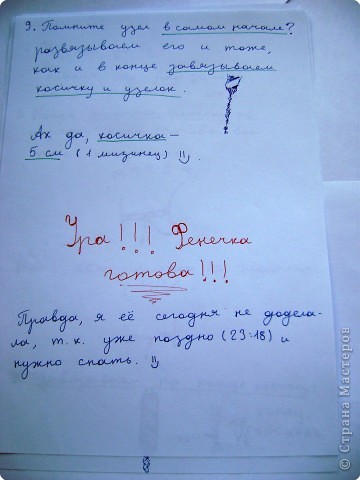 9. Помните узел в самом начале?
развязываем его и тоже,
как и в конце завязываем
косичку и узелок.
Ах да, косичка –
5 см (1 мизинец) :).
Ура!!! Фенечка
готова!!!
Правда, я её сегодня не додела-
ла, т.к. уже поздно (23:18) и
нужно спать. :)
© Страна Мастеров